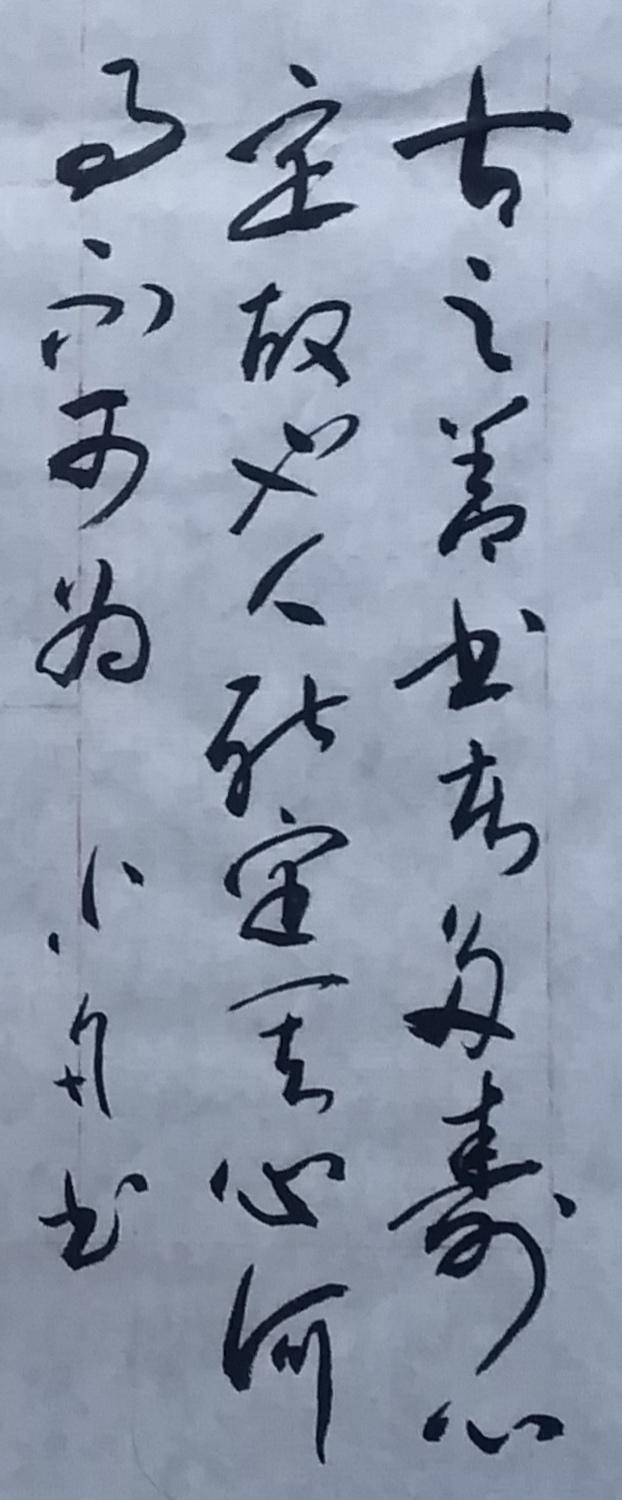 古之善书者多寿心
定故也人能定其心何
事不可为 小舟书